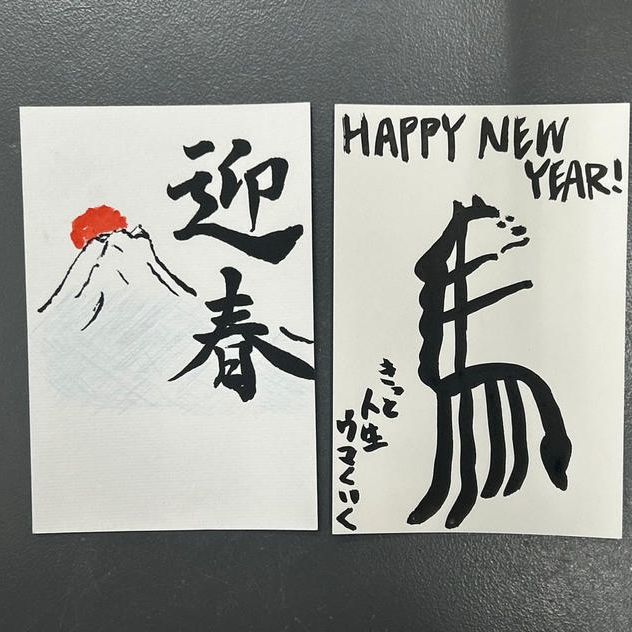 迎春
HAPPY NEW
YEAR!
馬
きっと
人生
ウマくいく